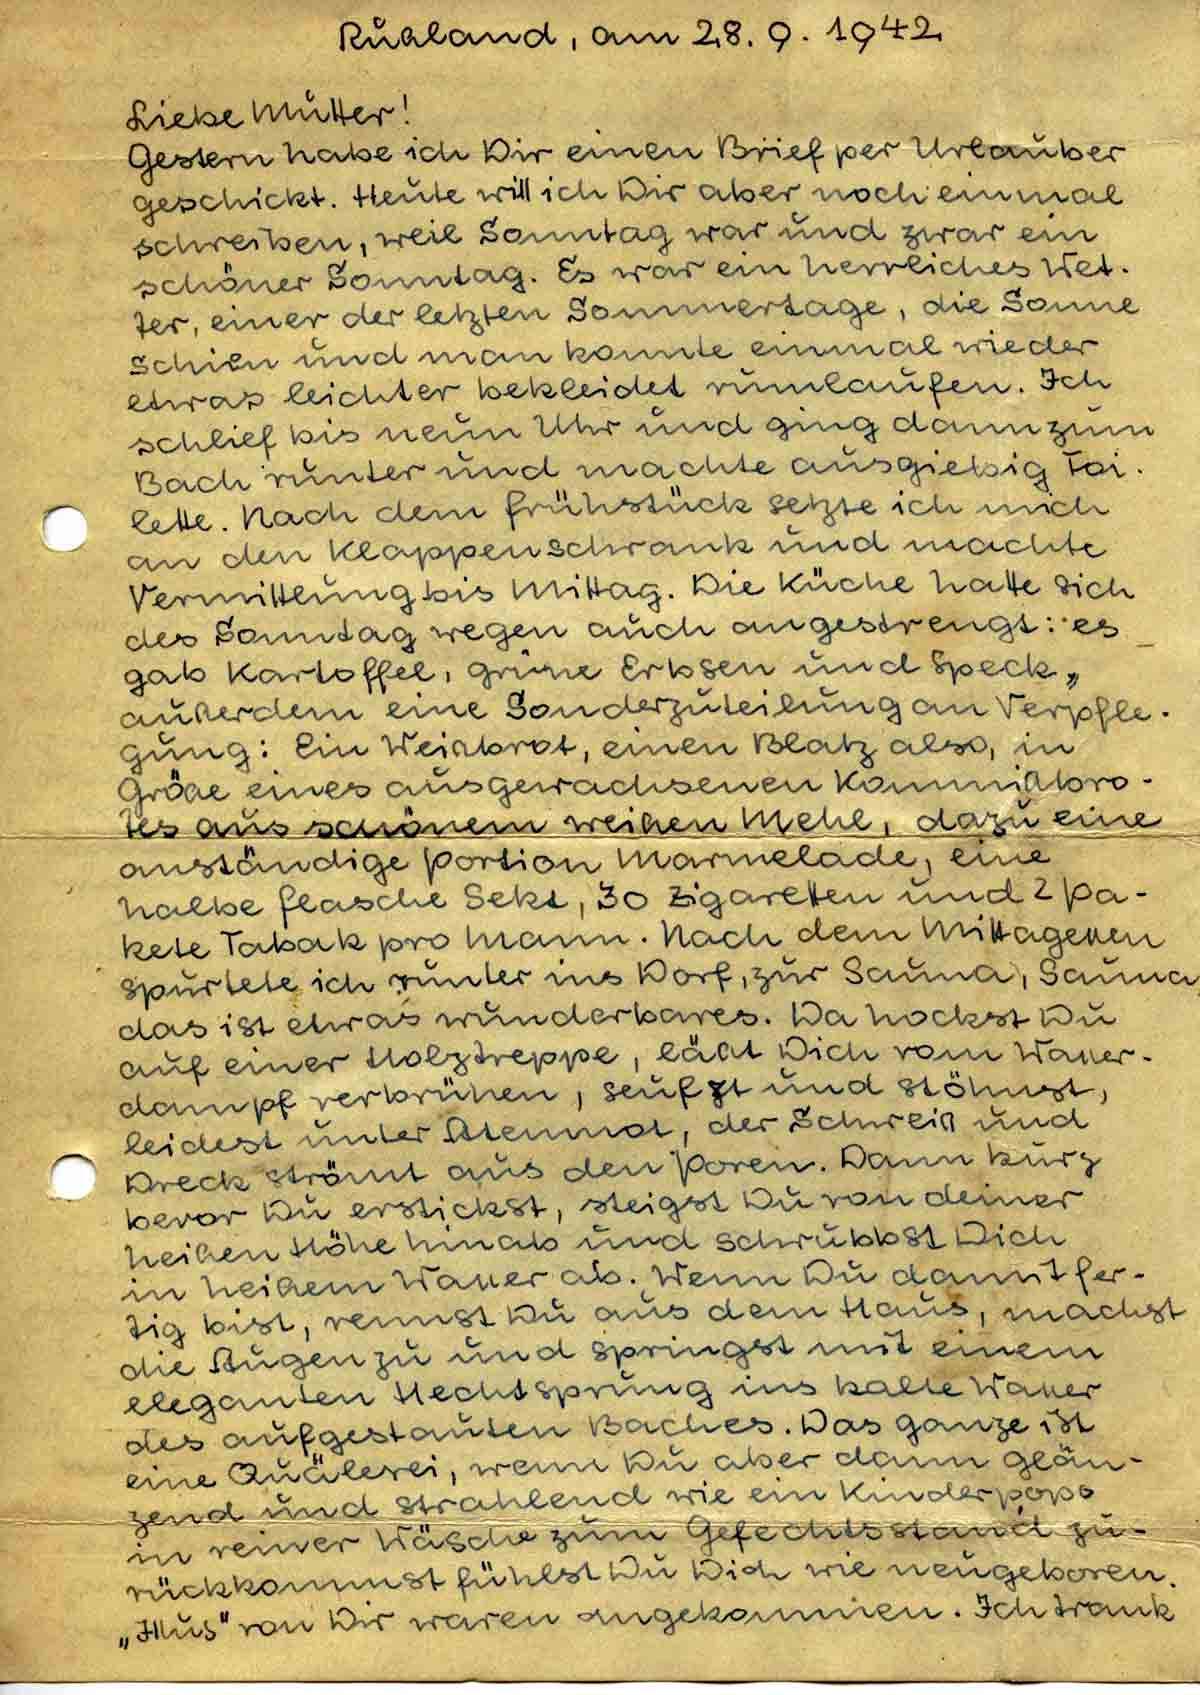 Rußland, am 28. 9. 1942
Liebe Mutter!
Gestern habe ich Dir einen Brief per Urlauber
geschickt. Heute will ich Dir aber noch einmal
schreiben, weil Sonntag war und zwar ein
schöner Sonntag. Es war ein herrliches Wet-
ter, einer der letzten Sommertage, die Sonne
schien und man konnte einmal wieder
etwas leichter bekleidet rumlaufen. Ich
schlief bis neun Uhr und ging dann zum
Bach runter und machte ausgiebig Toi-
lette. Nach dem Frühstück setzte ich mich
an den Klappenschrank und machte
Vermittlung bis Mittag. Die Küche hatte sich
des Sonntag wegen auch angestrengt: es
gab Kartoffel, grüne Erbsen und Speck,
außerdem eine Sonderzuteilung an Verpfle-
gung: Ein Weißbrot, einen Blatz also, in
Größe eines ausgewachsenen Kommißbro-
tes aus schönem weißen Mehl, dazu eine
anständige Portion Marmelade, eine
halbe Flasche Sekt, 30 Zigaretten und 2 Pa-
kete Tabak pro Mann. Nach dem Mittagessen
spurtete ich runter ins Dorf, zur Sauna, Sauna
das ist etwas wunderbares. Da hockst Du
auf einer Holztreppe, läßt Dich vom Wasser-
dampf verbrühen, seufzt und stöhnst,
leidest unter Atemnot, der Schweiß und
Dreck strömt aus den Poren. Dann kurz
bevor Du erstickst, steigst Du von deiner
heißen Höhe hinab und schrubbst Dich
in heißem Wasser ab. Wenn Du damit fer-
tig bist, rennst Du aus dem Haus, machst
die Augen zu und springst mit einem
eleganten Hechtsprung ins kalte Wasser
des aufgestauten Baches. Das ganze ist
eine Quälerei, wenn Du aber dann glän-
zend und strahlend wie ein Kinderpopo
in reiner Wäsche zum Gefechtsstand zu-
rückkommst fühlst Du Dich wie neugeboren.
„Illus" von Dir waren angekommen. Ich trank